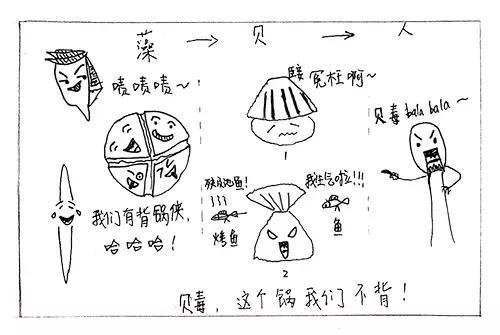 藻 → 贝 → 人
啧啧啧~
我们有背锅侠,
哈哈哈!
冤枉啊~
1
殃及池鱼!
烤鱼
我生气啦!!!
鱼
2
贝毒 bala bala~
贝毒，这个锅我们不背!